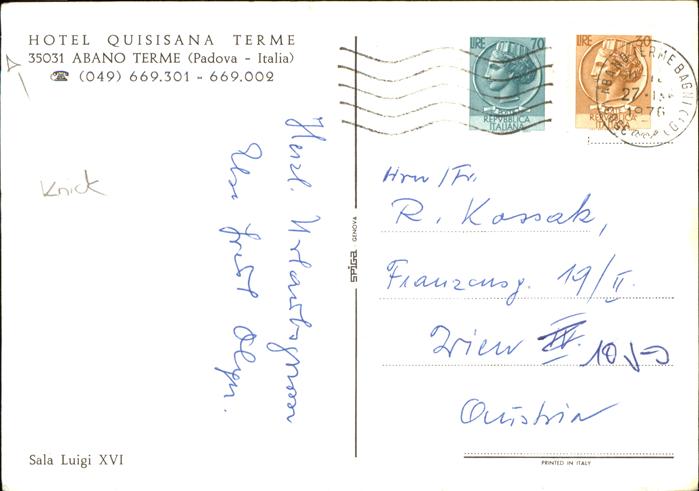 HOTEL QUISISANA TERME
35031 ABANO TERME (Padova - Italia)
☎ (049) 669.301 - 669.002
Knick
Herzl. Urlaubsgrüsse
Sala Luigi XVI
SPIGA GENOVA
LIRE 70
REPVBBLICA
ITALIANA
LIRE 30
REPVBBLICA
ITALIANA
ABANO TERME BAGNI (PD)
27
1976
Hrn/Fr.
R. Kossak,
Franzensg. 19/II.
Wien IV. 1050
Austria
PRINTED IN ITALY